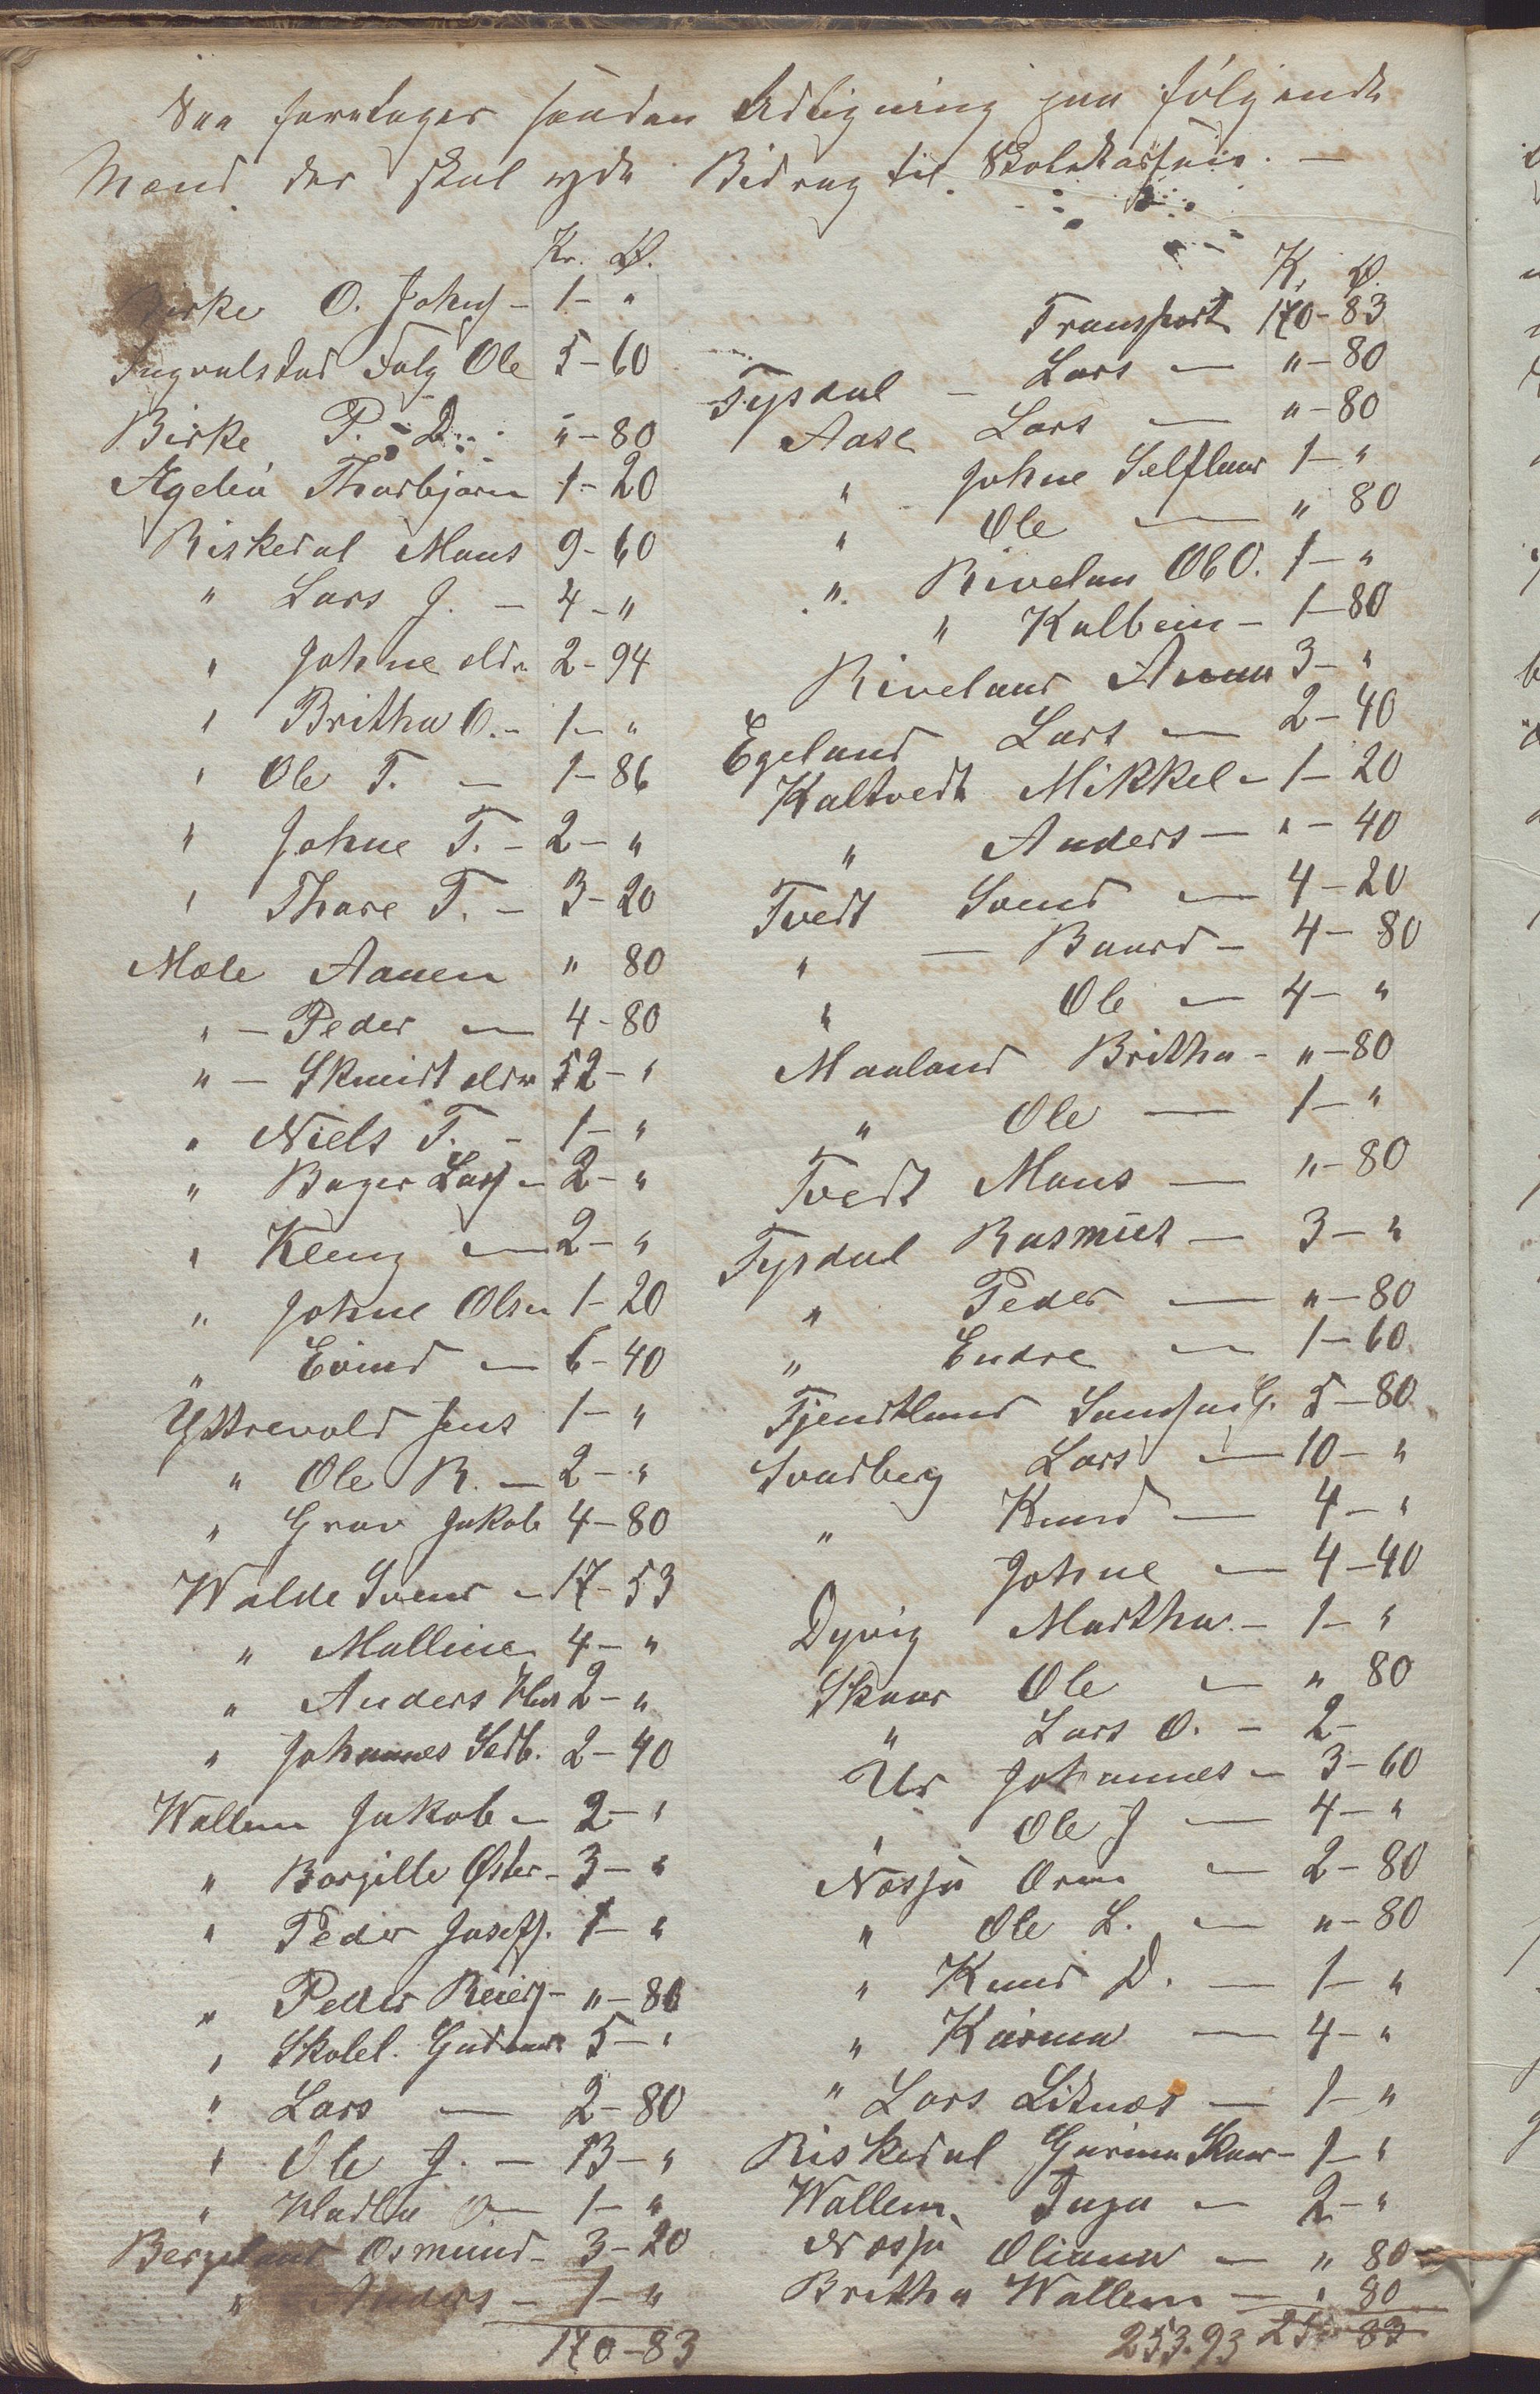 Saa foretages saadan Udligning paa følgende
Mænd der skal yde Bidrag til Skolekassen. —
Kr. Ø.
Birke O. Johns – 1 – "
Ingvalstad Falg Ole 5 – 60
Birke P. D. " – 80
Thorbjørn 1 – 20
Riskedal Mans 9 – 60
" Lars J. – 4 – "
" Johne eldr. 2 – 94
" Britha O. – 1 – "
" Ole T. — 1 – 86
" Johne T. – 2 – "
" Thore T. – 3 – 20
Mæle Aanen " 80
" – Peder — 4 – 80
" – Skmidt eldr 52 – "
" Niels T. – 1 – "
" Lars – 2 – "
" Kleng — 2 – "
" Johne Olsn 1 – 20
" Eivind — 6 – 40
Yttrevold Jens 1 – "
" Ole R. — 2 – "
" Grav Jakob 4 – 80
Walde Svend – 17 – 53
" Malline 4 – "
" Anders 2 – "
" Johannes Sedb. 2 – 40
Wallem Jakob – 2 – "
" Borgille Øster – 3 – "
" Peder Josefs. 1 – "
" Peder Reiers – " – 80
" Skolel. Gudmund 5 – "
" Lars — 2 – 80
" Ole J. – 13 – "
" O — 1 – "
Bergeland Osmund – 3 – 20
" Anders – 1 – "
170 – 83
K. Ø.
Transport 170 – 83
Tysdal – Lars — " – 80
Aase Lars — " – 80
" Johne 1 – "
" Ole — " 80
" Riveland Ole O. 1 – "
" Kalbein – 1 – 80
Riveland Anna 3 – "
Egeland Lars — 2 – 40
Kaltvedt Mikkel – 1 – 20
" Anders — " – 40
Tvedt Svend — 4 – 20
" — Baard – 4 – 80
" Ole — 4 – "
Maaland Britha – " – 80
" Ole — 1 – "
Tvedt Mans — " – 80
Tysdal Rasmus — 3 – "
" Peder — " – 80
" Endre — 1 – 60
Fjendtland G. 5 – 80
Svadberg Lars — 10 – "
" Knud — 4 – "
Johne — 4 – 40
Dyvig Martha. – 1 – "
Skaar Ole — " 80
" Lars O. – 2 –
Ur Johannes – 3 – 60
" Ole J — 4 – "
Næssa Orm — 2 – 80
" Ole L. — " – 80
" Knud D. — 1 – "
" Karina — 4 – "
" Lars Litnæs — 1 – "
Riskedal Gurina Skaar – 1 – "
Wallem Inga — 2 – "
Næssa Oliana — " 80
Britha Wallem — " 80
253.93 83